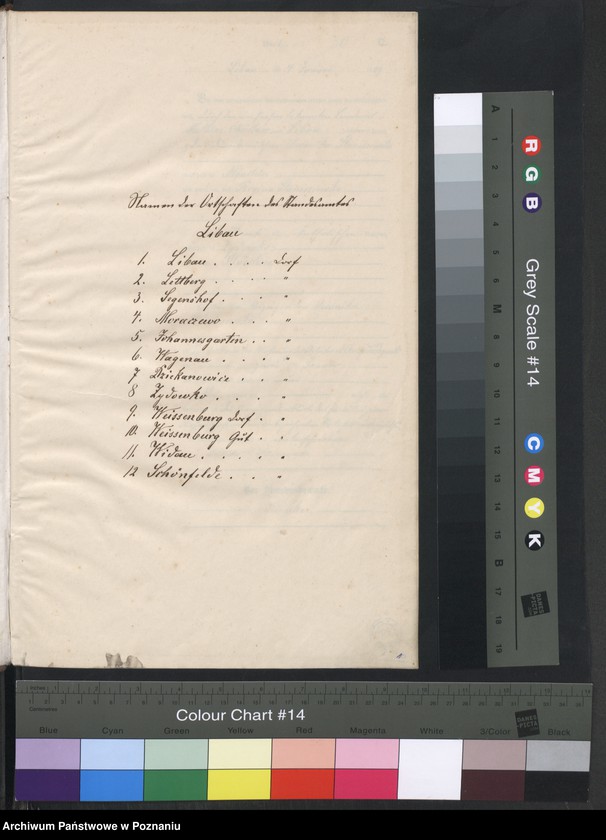 Namen der Ortschaften des Standesamtes
Libau
1. Libau . . . . Dorf
2. Lettberg . . . . "
3. Segenshof . . . "
4. Moraczewo . . . "
5. Johannesgarten . . "
6. Wagenau . . . "
7 Dziekanowice . . "
8 Zydowko . . . . "
9. Weissenburg Dorf . "
10. Weissenburg Gut . "
11. Widau . . . . . "
12 Schönfelde . . . "
A 1 2 3 4 5 6 M 8 9 10 11 12 13 14 15 B 17 18 19
R G B
Grey Scale #14
C M Y K
DANES
PICTA
Inches
Centimetres
Colour Chart #14
DANES
PICTA
Blue Cyan Green Yellow Red Magenta White 3/Color Black
Archiwum Państwowe w Poznaniu